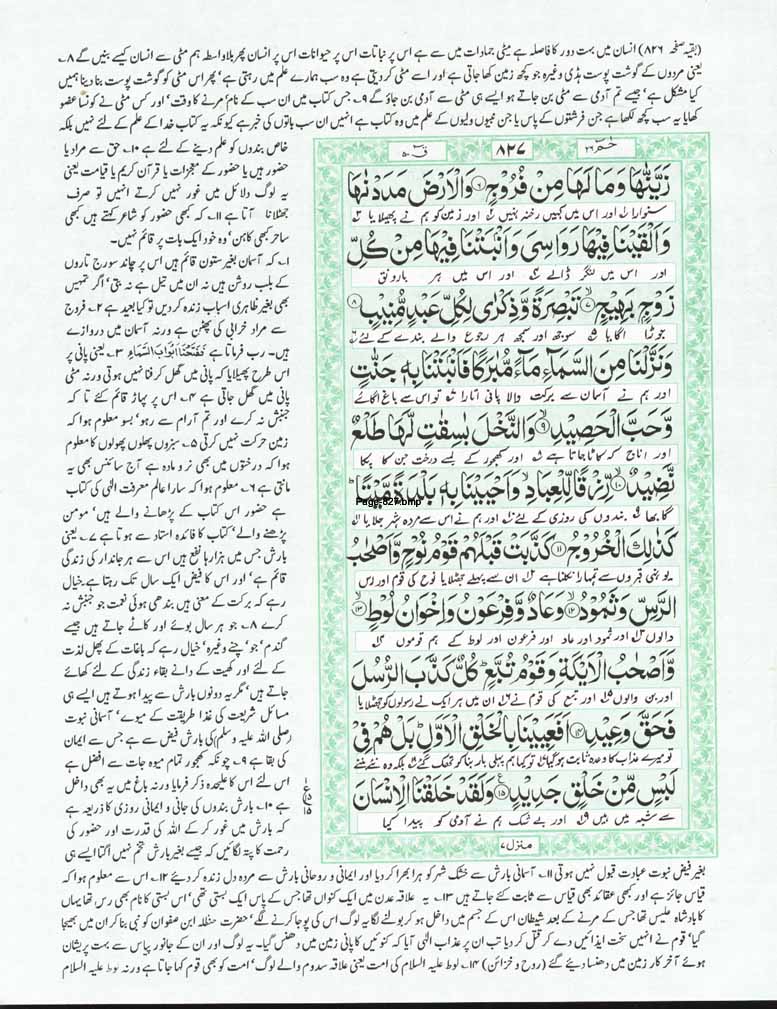 (بقیہ صفحہ ۸۲۶) انسان میں بہت دور کا فاصلہ ہے مٹی جمادات میں سے ہے اس پر نباتات اس پر حیوانات اس پر انسان پھر بلاواسطہ ہم مٹی سے انسان کیسے بنیں گے ۸۔
یعنی مردوں کے گوشت پوست ہڈی وغیرہ جو کچھ زمین کھا جاتی ہے اور اسے مٹی کر دیتی ہے وہ سب ہمارے علم میں رہتی ہے' پھر اس مٹی کو گوشت پوست بنا دینا ہمیں
کیا مشکل ہے' جیسے تم آدمی سے مٹی بن جاتے ہو ایسے ہی مٹی سے آدمی بن جاؤ گے ۹۔ جس کتاب میں ان سب کے نام' مرنے کا وقت' اور کس مٹی نے کونسا عضو
کھایا یہ سب کچھ لکھا ہے جن فرشتوں کے پاس یا جن نبیوں ولیوں کے علم میں وہ کتاب ہے انہیں ان سب باتوں کی خبر ہے کیونکہ یہ کتاب خدا کے علم کے لئے نہیں بلکہ
حٰمٓ ۲۶
۸۲۷
قٓ ۵۰
زَيَّنّٰهَا وَمَا لَهَا مِنْ فُرُوْجٍ ۶ وَالْاَرْضَ مَدَدْنٰهَا
سنوارا اور اس میں کہیں رخنہ نہیں اور زمین کو ہم نے پھیلایا
وَاَلْقَيْنَا فِيْهَا رَوَاسِيَ وَاَنْۢبَتْنَا فِيْهَا مِنْ كُلِّ
اور اس میں لنگر ڈالے اور اس میں ہر بارونق
زَوْجٍۢ بَهِيْجٍ ۷ تَبْصِرَةً وَّذِكْرٰى لِكُلِّ عَبْدٍ مُّنِيْبٍ ۸
جوڑا اگایا سوجھ اور سمجھ ہر رجوع والے بندے کے لئے
وَنَزَّلْنَا مِنَ السَّمَآءِ مَآءً مُّبٰرَكًا فَاَنْۢبَتْنَا بِهٖ جَنّٰتٍ
اور ہم نے آسمان سے برکت والا پانی اتارا تو اس سے باغ اگائے
وَّحَبَّ الْحَصِيْدِ ۹ وَالنَّخْلَ بٰسِقٰتٍ لَّهَا طَلْعٌ
اور اناج کہ کاٹا جاتا ہے اور کھجور کے لمبے درخت جن کا پکا
نَّضِيْدٌ ۱۰ رِّزْقًا لِّلْعِبَادِ وَاَحْيَيْنَا بِهٖ بَلْدَةً مَّيْتًا
Page-827.bmp
گابھا بندوں کی روزی کے لئے اور ہم نے اس سے مردہ شہر جلایا
كَذٰلِكَ الْخُرُوْجُ ۱۱ كَذَّبَتْ قَبْلَهُمْ قَوْمُ نُوْحٍ وَّاَصْحٰبُ
یونہی قبروں سے تمہارا نکلنا ہے ان سے پہلے جھٹلایا نوح کی قوم اور رس
الرَّسِّ وَثَمُوْدُ ۱۲ وَعَادٌ وَّفِرْعَوْنُ وَاِخْوَانُ لُوْطٍ ۱۳
والوں اور ثمود اور عاد اور فرعون اور لوط کے ہم قوموں
وَّاَصْحٰبُ الْاَيْكَةِ وَقَوْمُ تُبَّعٍ كُلٌّ كَذَّبَ الرُّسُلَ
اور بن والوں اور تبع کی قوم نے ان میں ہر ایک نے رسولوں کو جھٹلایا
فَحَقَّ وَعِيْدِ ۱۴ اَفَعَيِيْنَا بِالْخَلْقِ الْاَوَّلِ بَلْ هُمْ فِيْ
تو میرے عذاب کا وعدہ ثابت ہو گیا تو کیا ہم پہلی بار بنا کر تھک گئے بلکہ وہ نئے بننے
لَبْسٍ مِّنْ خَلْقٍ جَدِيْدٍ ۱۵ وَلَقَدْ خَلَقْنَا الْاِنْسَانَ
سے شبہ میں ہیں اور بے شک ہم نے آدمی کو پیدا کیا
منزل ۷
ع
۱۵
خاص بندوں کو علم دینے کے لئے ہے ۱۰۔ حق سے مراد یا
حضور ہیں یا حضور کے معجزات یا قرآن کریم یا قیامت یعنی
یہ لوگ دلائل میں غور نہیں کرتے انہیں تو صرف
جھٹلانا آتا ہے ۱۱۔ کہ کبھی حضور کو شاعر کہتے ہیں کبھی
ساحر کبھی کاہن' وہ خود ایک بات پر قائم نہیں۔
۱۔ کہ آسمان بغیر ستون قائم ہیں اس پر چاند سورج تاروں
کے بلب روشن ہیں نہ ان میں تیل ہے نہ بتی' اگر تمہیں
بھی بغیر ظاہری اسباب زندہ کر دیں تو کیا بعید ہے ۲۔ فروج
سے مراد خرابی کی پھٹن ہے ورنہ آسمان میں دروازے
ہیں۔ رب فرماتا ہے فَفَتَحْنَا اَبْوَابَ السَّمَآءِ ۳۔ یعنی پانی پر
اس طرح پھیلایا کہ پانی میں گھل کر فنا نہیں ہوتی ورنہ مٹی
پانی میں گھل جاتی ہے ۴۔ اس پر پہاڑ قائم کئے تا کہ
جنبش نہ کرے اور تم آرام سے رہو' سو معلوم ہوا کہ
زمین حرکت نہیں کرتی ۵۔ سبزوں پھلوں پھولوں کا معلوم
ہوا کہ درختوں میں بھی نر و مادہ ہے آج سائنس بھی یہ
مانتی ہے ۶۔ معلوم ہوا کہ سارا عالم معرفت الٰہی کی کتاب
ہے حضور اس کتاب کے پڑھانے والے ہیں' مومن
پڑھنے والے' کتاب کا فائدہ استاد سے ہوتا ہے ۷۔ یعنی
بارش جس میں ہزارہا نفع ہیں اس سے ہر جاندار کی زندگی
قائم ہے' اور اس کا فیض ایک سال تک رہتا ہے خیال
رہے کہ برکت کے معنی ہیں بندھی ہوئی نعمت جو جنبش نہ
کرے ۸۔ جو ہر سال بوئے اور کاٹے جاتے ہیں جیسے
گندم' جو' چنے وغیرہ' خیال رہے کہ باغات کے پھل لذت
کے لئے اور کھیت کے دانے بقاء زندگی کے لئے کھائے
جاتے ہیں' مگر یہ دونوں بارش سے پیدا ہوتے ہیں ایسے ہی
مسائل شریعت کی غذا طریقت کے میوے' آسمانی نبوت
(صلی اللہ علیہ وسلم) کی بارش فیض سے ہے جس سے ایمان
کی بقا ہے ۹۔ چونکہ کھجور تمام میوہ جات سے افضل ہے
اس لئے اس کا علیحدہ ذکر فرمایا ورنہ باغ میں یہ بھی داخل
ہے ۱۰۔ بارش بندوں کی جانی و ایمانی روزی کا ذریعہ ہے
کہ بارش میں غور کر کے اللہ کی قدرت اور حضور کی
رحمت کا پتہ لگائیں کہ جیسے بغیر بارش تخم نہیں اگتا ایسے ہی
بغیر فیض نبوت عبادت قبول نہیں ہوتی ۱۱۔ آسمانی بارش سے خشک شہر کو ہرا بھرا کر دیا اور ایمانی و روحانی بارش سے مردہ دل زندہ کر دیئے ۱۲۔ اس سے معلوم ہوا کہ
قیاس جائز ہے اور کبھی عقائد بھی قیاس سے ثابت کئے جاتے ہیں ۱۳۔ یہ علاقہ عدن میں ایک کنواں تھا جس کے پاس ایک بستی تھی' اس بستی کا نام بھی رس تھا یہاں
کا بادشاہ علیس تھا جس کے مرنے کے بعد شیطان اس کے جسم میں داخل ہو کر بولنے لگا یہ لوگ اس کی پوجا کرنے لگے' حضرت حنظلہ ابن صفوان کو نبی بنا کر ان میں بھیجا
گیا' قوم نے انہیں سخت ایذائیں دے کر قتل کر دیا تب ان پر عذاب الٰہی آیا کہ کنوئیں کا پانی زمین میں دھنس گیا۔ یہ لوگ اور ان کے جانور پیاس سے بہت پریشان
ہوئے آخر کار زمین میں دھنسا دیئے گئے (روح و خزائن) ۱۴۔ لوط علیہ السلام کی امت یعنی علاقہ سدوم والے لوگ' امت کو بھی قوم کہا جاتا ہے ورنہ لوط علیہ السلام